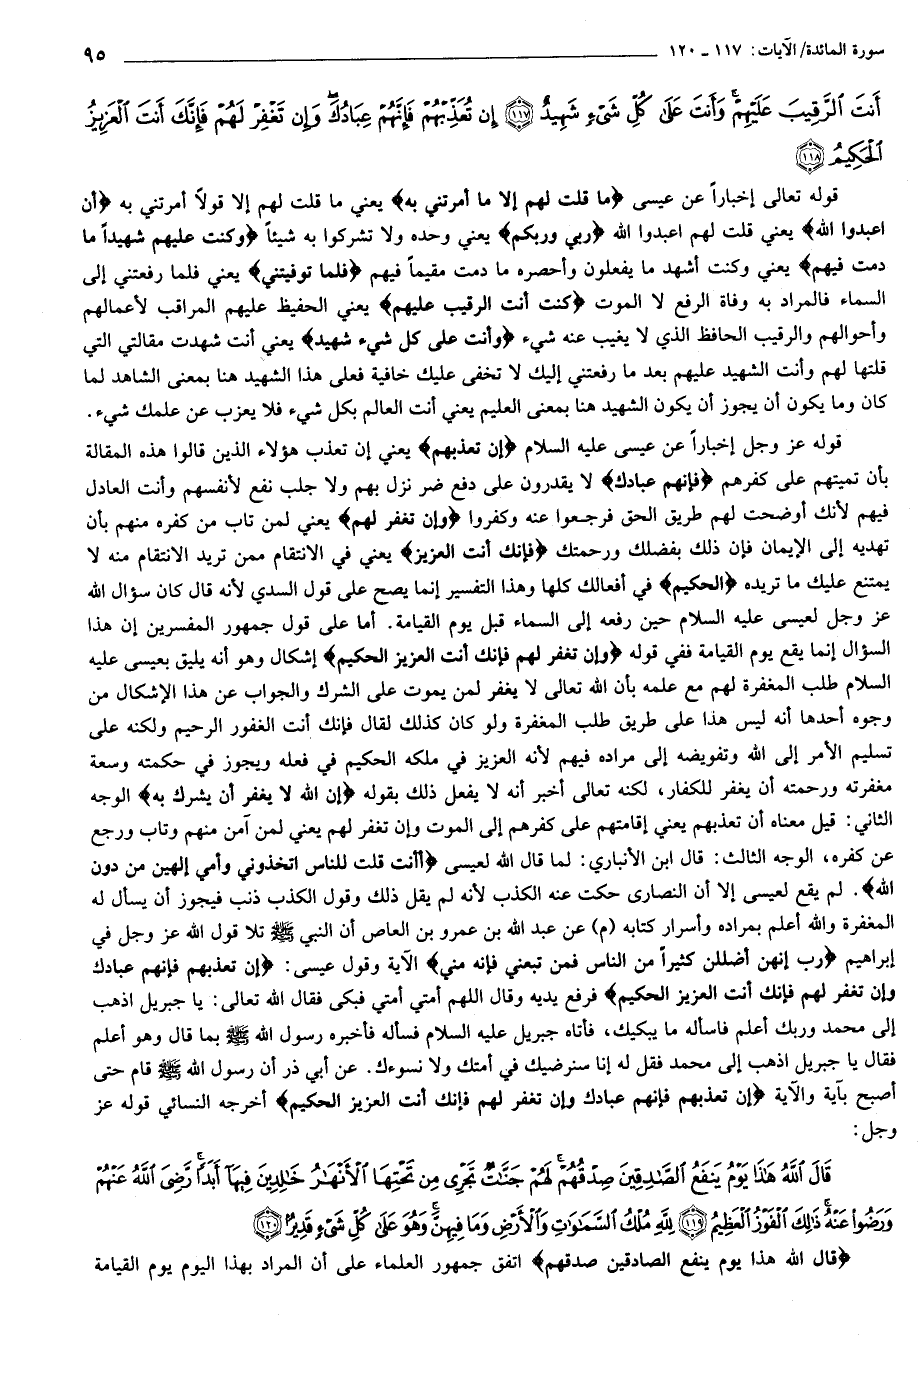 سورة المائدة/ الآيات: ١١٧ ـ ١٢٠ ٩٥
أَنتَ ٱلرَّقِيبَ عَلَيْهِمْ ۚ وَأَنتَ عَلَىٰ كُلِّ شَىْءٍ شَهِيدٌ ﴿١١٧﴾ إِن تُعَذِّبْهُمْ فَإِنَّهُمْ عِبَادُكَ ۖ وَإِن تَغْفِرْ لَهُمْ فَإِنَّكَ أَنتَ ٱلْعَزِيزُ
ٱلْحَكِيمُ ﴿١١٨﴾
قوله تعالى إخباراً عن عيسى ﴿ما قلت لهم إلا ما أمرتني به﴾ يعني ما قلت لهم إلا قولاً أمرتني به ﴿أن
اعبدوا الله﴾ يعني قلت لهم اعبدوا الله ﴿ربي وربكم﴾ يعني وحده ولا تشركوا به شيئاً ﴿وكنت عليهم شهيداً ما
دمت فيهم﴾ يعني وكنت أشهد ما يفعلون وأحصره ما دمت مقيماً فيهم ﴿فلما توفيتني﴾ يعني فلما رفعتني إلى
السماء فالمراد به وفاة الرفع لا الموت ﴿كنت أنت الرقيب عليهم﴾ يعني الحفيظ عليهم المراقب لأعمالهم
وأحوالهم والرقيب الحافظ الذي لا يغيب عنه شيء ﴿وأنت على كل شيء شهيد﴾ يعني أنت شهدت مقالتي التي
قلتها لهم وأنت الشهيد عليهم بعد ما رفعتني إليك لا تخفى عليك خافية فعلى هذا الشهيد هنا بمعنى الشاهد لما
كان وما يكون أن يجوز أن يكون الشهيد هنا بمعنى العليم يعني أنت العالم بكل شيء فلا يعزب عن علمك شيء.
قوله عز وجل إخباراً عن عيسى عليه السلام ﴿إن تعذبهم﴾ يعني إن تعذب هؤلاء الذين قالوا هذه المقالة
بأن تميتهم على كفرهم ﴿فإنهم عبادك﴾ لا يقدرون على دفع ضر نزل بهم ولا جلب نفع لأنفسهم وأنت العادل
فيهم لأنك أوضحت لهم طريق الحق فرجعوا عنه وكفروا ﴿وإن تغفر لهم﴾ يعني لمن تاب من كفره منهم بأن
تهديه إلى الإيمان فإن ذلك بفضلك ورحمتك ﴿فإنك أنت العزيز﴾ يعني في الانتقام ممن تريد الانتقام منه لا
يمتنع عليك ما تريده ﴿الحكيم﴾ في أفعالك كلها وهذا التفسير إنما يصح على قول السدي لأنه قال كان سؤال الله
عز وجل لعيسى عليه السلام حين رفعه إلى السماء قبل يوم القيامة. أما على قول جمهور المفسرين إن هذا
السؤال إنما يقع يوم القيامة ففي قوله ﴿وإن تغفر لهم فإنك أنت العزيز الحكيم﴾ إشكال وهو أنه يليق بعيسى عليه
السلام طلب المغفرة لهم مع علمه بأن الله تعالى لا يغفر لمن يموت على الشرك والجواب عن هذا الإشكال من
وجوه أحدها أنه ليس هذا على طريق طلب المغفرة ولو كان كذلك لقال فإنك أنت الغفور الرحيم ولكنه على
تسليم الأمر إلى الله وتفويضه إلى مراده فيهم لأنه العزيز في ملكه الحكيم في فعله ويجوز في حكمته وسعة
مغفرته ورحمته أن يغفر للكفار، لكنه تعالى أخبر أنه لا يفعل ذلك بقوله ﴿إن الله لا يغفر أن يشرك به﴾ الوجه
الثاني: قيل معناه أن تعذبهم يعني إقامتهم على كفرهم إلى الموت وإن تغفر لهم يعني لمن آمن منهم وتاب ورجع
عن كفره، الوجه الثالث: قال ابن الأنباري: لما قال الله لعيسى ﴿أأنت قلت للناس اتخذوني وأمي إلهين من دون
الله﴾. لم يقع لعيسى إلا أن النصارى حكت عنه الكذب لأنه لم يقل ذلك وقول الكذب ذنب فيجوز أن يسأل له
المغفرة والله أعلم بمراده وأسرار كتابه (م) عن عبد الله بن عمرو بن العاص أن النبي ﷺ تلا قول الله عز وجل في
إبراهيم ﴿رب إنهن أضللن كثيراً من الناس فمن تبعني فإنه مني﴾ الآية وقول عيسى: ﴿إن تعذبهم فإنهم عبادك
وإن تغفر لهم فإنك أنت العزيز الحكيم﴾ فرفع يديه وقال اللهم أمتي أمتي فبكى فقال الله تعالى: يا جبريل اذهب
إلى محمد وربك أعلم فاسأله ما يبكيك، فأتاه جبريل عليه السلام فسأله فأخبره رسول الله ﷺ بما قال وهو أعلم
فقال يا جبريل اذهب إلى محمد فقل له إنا سنرضيك في أمتك ولا نسوءك. عن أبي ذر أن رسول الله ﷺ قام حتى
أصبح بآية والآية ﴿إن تعذبهم فإنهم عبادك وإن تغفر لهم فإنك أنت العزيز الحكيم﴾ أخرجه النسائي قوله عز
وجل:
قَالَ ٱللَّهُ هَٰذَا يَوْمُ يَنفَعُ ٱلصَّٰدِقِينَ صِدْقُهُمْ ۚ لَهُمْ جَنَّٰتٌ تَجْرِى مِن تَحْتِهَا ٱلْأَنْهَٰرُ خَٰلِدِينَ فِيهَآ أَبَدًا ۚ رَّضِىَ ٱللَّهُ عَنْهُمْ
وَرَضُوا۟ عَنْهُ ۚ ذَٰلِكَ ٱلْفَوْزُ ٱلْعَظِيمُ ﴿١١٩﴾ لِلَّهِ مُلْكُ ٱلسَّمَٰوَٰتِ وَٱلْأَرْضِ وَمَا فِيهِنَّ ۚ وَهُوَ عَلَىٰ كُلِّ شَىْءٍ قَدِيرٌۢ ﴿١٢٠﴾
﴿قال الله هذا يوم ينفع الصادقين صدقهم﴾ اتفق جمهور العلماء على أن المراد بهذا اليوم يوم القيامة